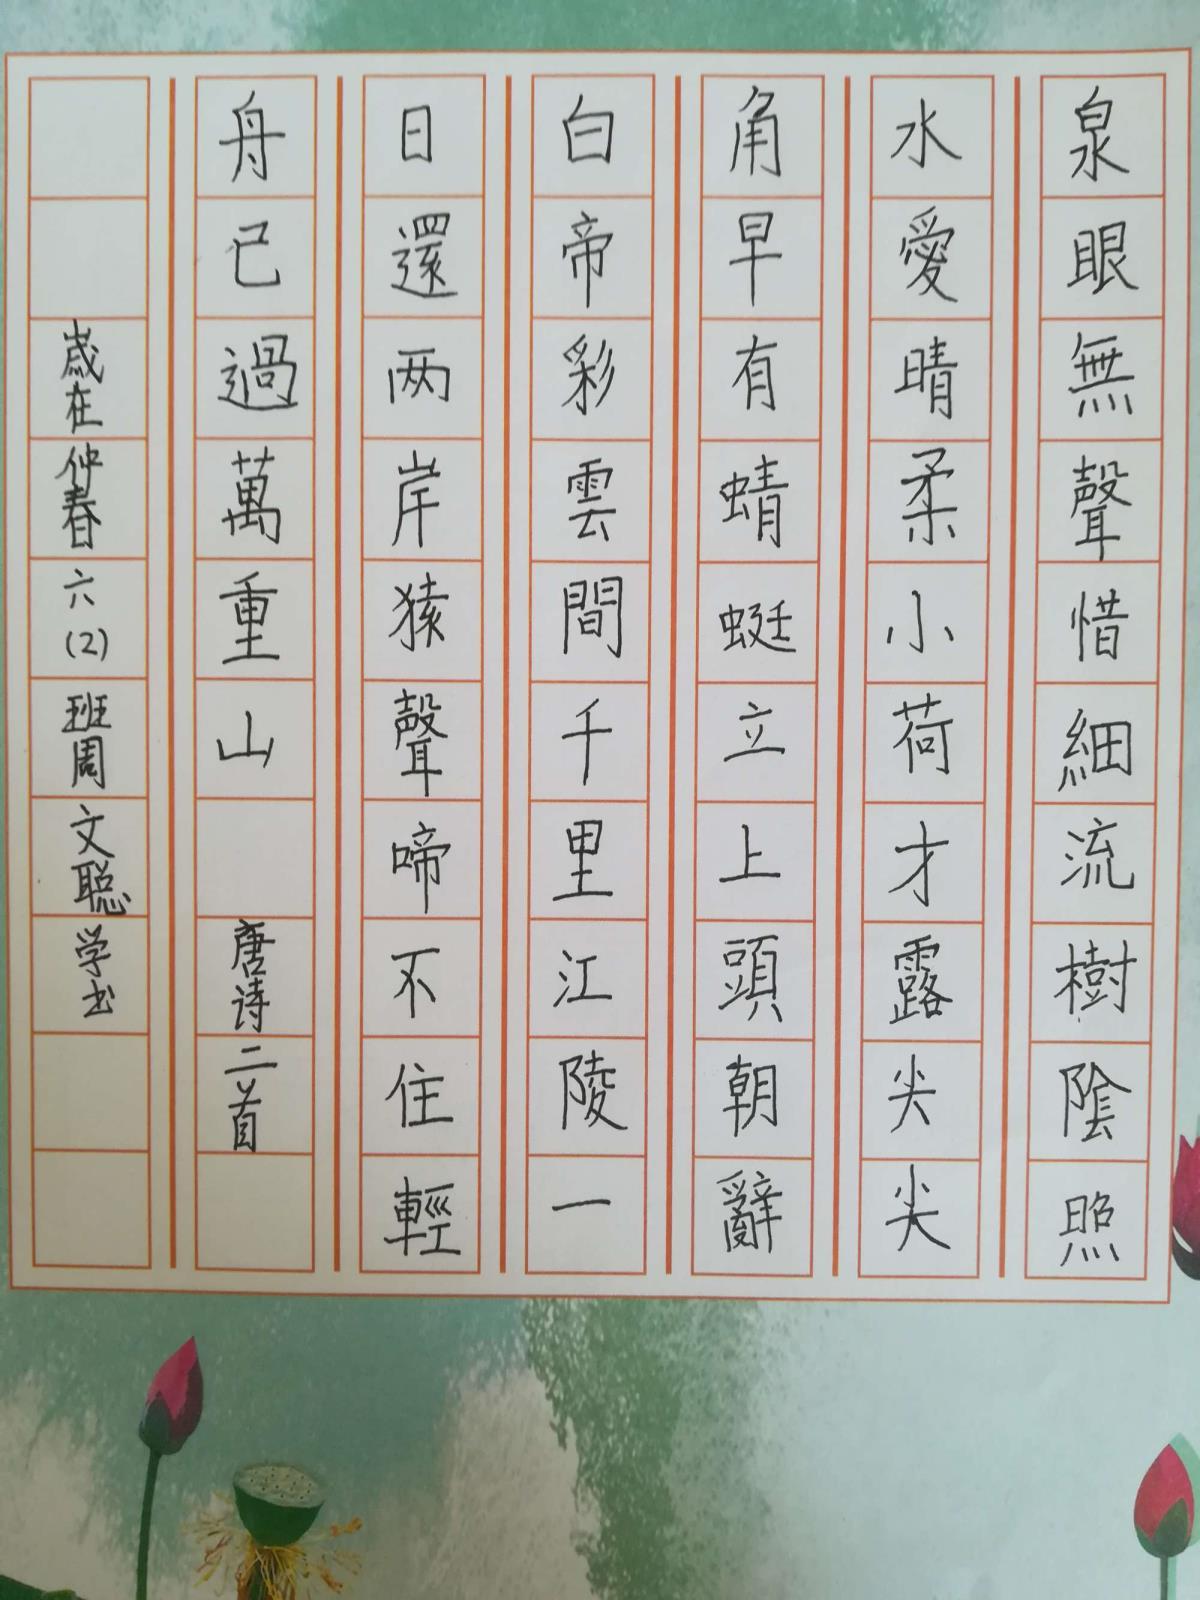 泉眼無聲惜細流樹陰照
水愛晴柔小荷才露尖尖
角早有蜻蜓立上頭朝辭
白帝彩雲間千里江陵一
日還两岸猿聲啼不住輕
舟已過萬重山 唐诗二首
歲在仲春六(2)班周文聪学书